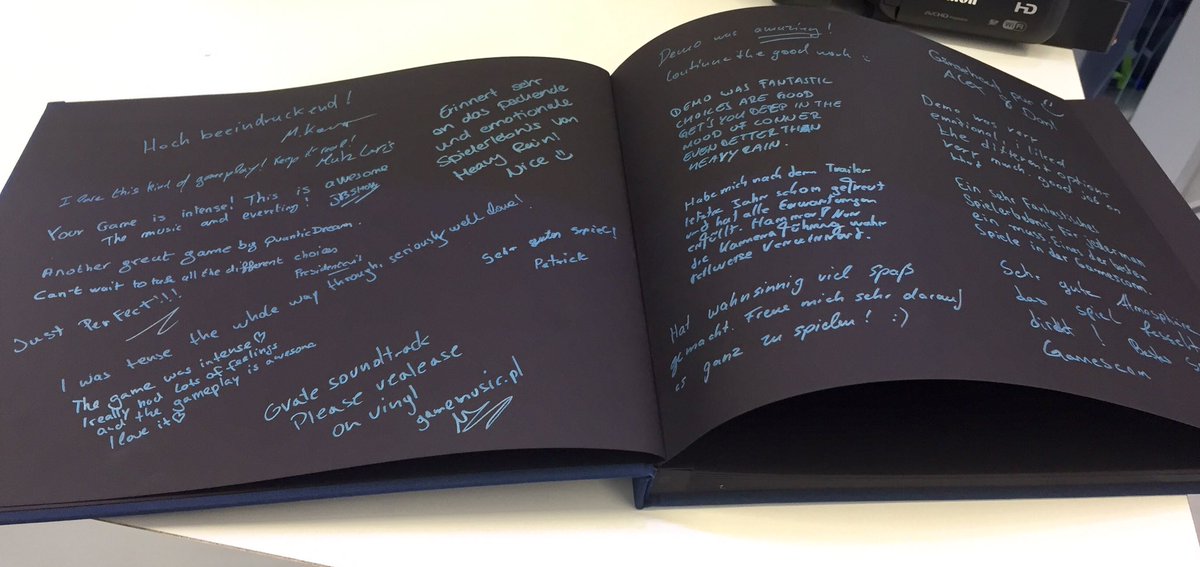 Hoch beeindruckend!
I love this kind of gameplay! Keep it real!
Your Game is intense! This is awesome
The music and eventing!
Another great game by QuanticDream.
Can't wait to all the different choices
Just PerFect!!!
I was tense the whole way through, seriously well done!
The game was intense♡
I really had Lots of feelings
and the gameplay is awesome
I love it♡
Grate soundtrack
Please realease
on vinyl
gamemusic.pl
Erinnert sehr
an das packende
und emotionale
Spielerlebnis von
Heavy Rain!
Nice ☺
Sehr gutes Spiel!
Patrick
Demo was amazing!
Continue the good work :)
DEMO WAS FANTASTIC
CHOICES ARE GOOD
GET'S YOU DEEP IN THE
MOOD OF CONNER
EVEN BETTER THEN
HEAVY RAIN.
Habe mich nach dem Trailer
letztes Jahr schon gefreut
und hat alle Erwartungen
erfüllt. Hammer! Nur
die Kameraführung wahr
teilweise verwirrend.
Hat wahnsinnig viel Spaß
gemacht. Freue mich sehr darauf
es ganz zu spielen! :)
Demo was very
emotional i liked
the different options
very much, good job on
that
Ein sehr Fantastisches
Spielerlebnis für jederman
ein muss. Eine der besten
Spiele in der Gamescom.
Sehr gute Atmosphäre
das spiel
direkt!
Gamescom
Canon
HD
AVCHD
WiFi